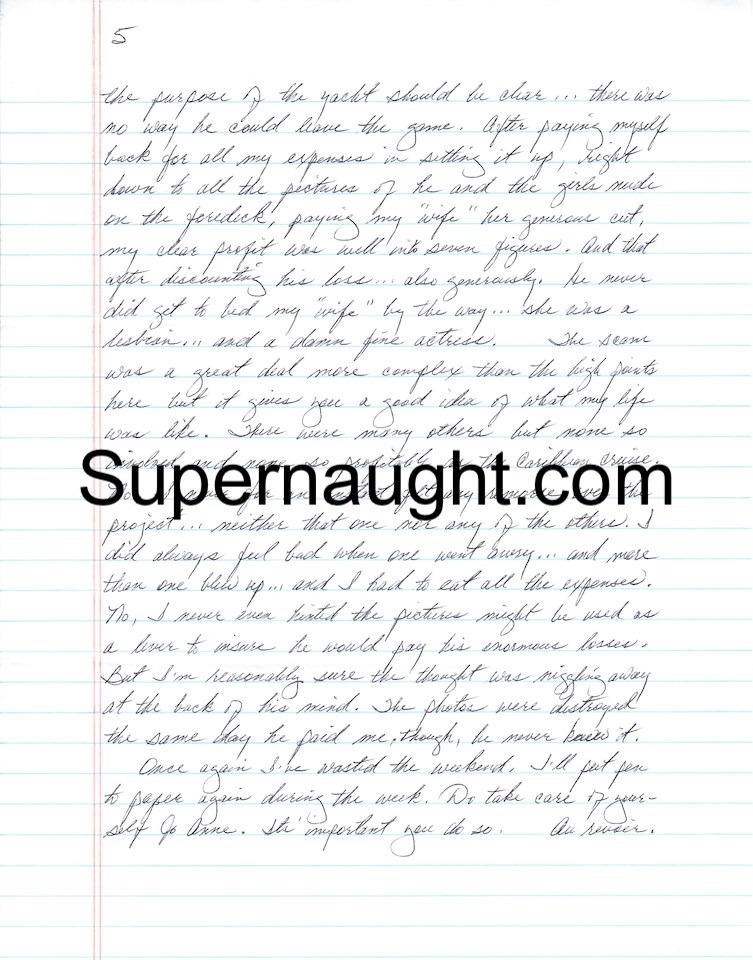 5
the purpose of the yacht should be clear... there was
no way he could leave the game. After paying myself
back for all my expenses in setting it up, right
down to all the pictures of he and the girls nude
on the foredeck, paying my "wife" her generous cut,
my clear profit was well into seven figures. And that
after discounting his loss... also generously. He never
did get to bed my "wife" by the way... she was a
lesbian... and a damn fine actress. The scam
was a great deal more complex than the high points
here but it gives you a good idea of what my life
was like. There were many others but none so
involved and none so profitable as the Caribbean cruise.
Supernaught.com
project... neither that one nor any of the others. I
did always feel bad when one went awry... and more
than one blew up... and I had to eat all the expenses.
No, I never even hinted the pictures might be used as
a lever to insure he would pay his enormous losses.
But I'm reasonably sure the thought was niggling away
at the back of his mind. The photos were destroyed
the same day he paid me, though, he never knew it.
Once again I've wasted the weekend. I'll put pen
to paper again during the week. Do take care of your-
self Jo Anne. It's important you do so. Au revoir.